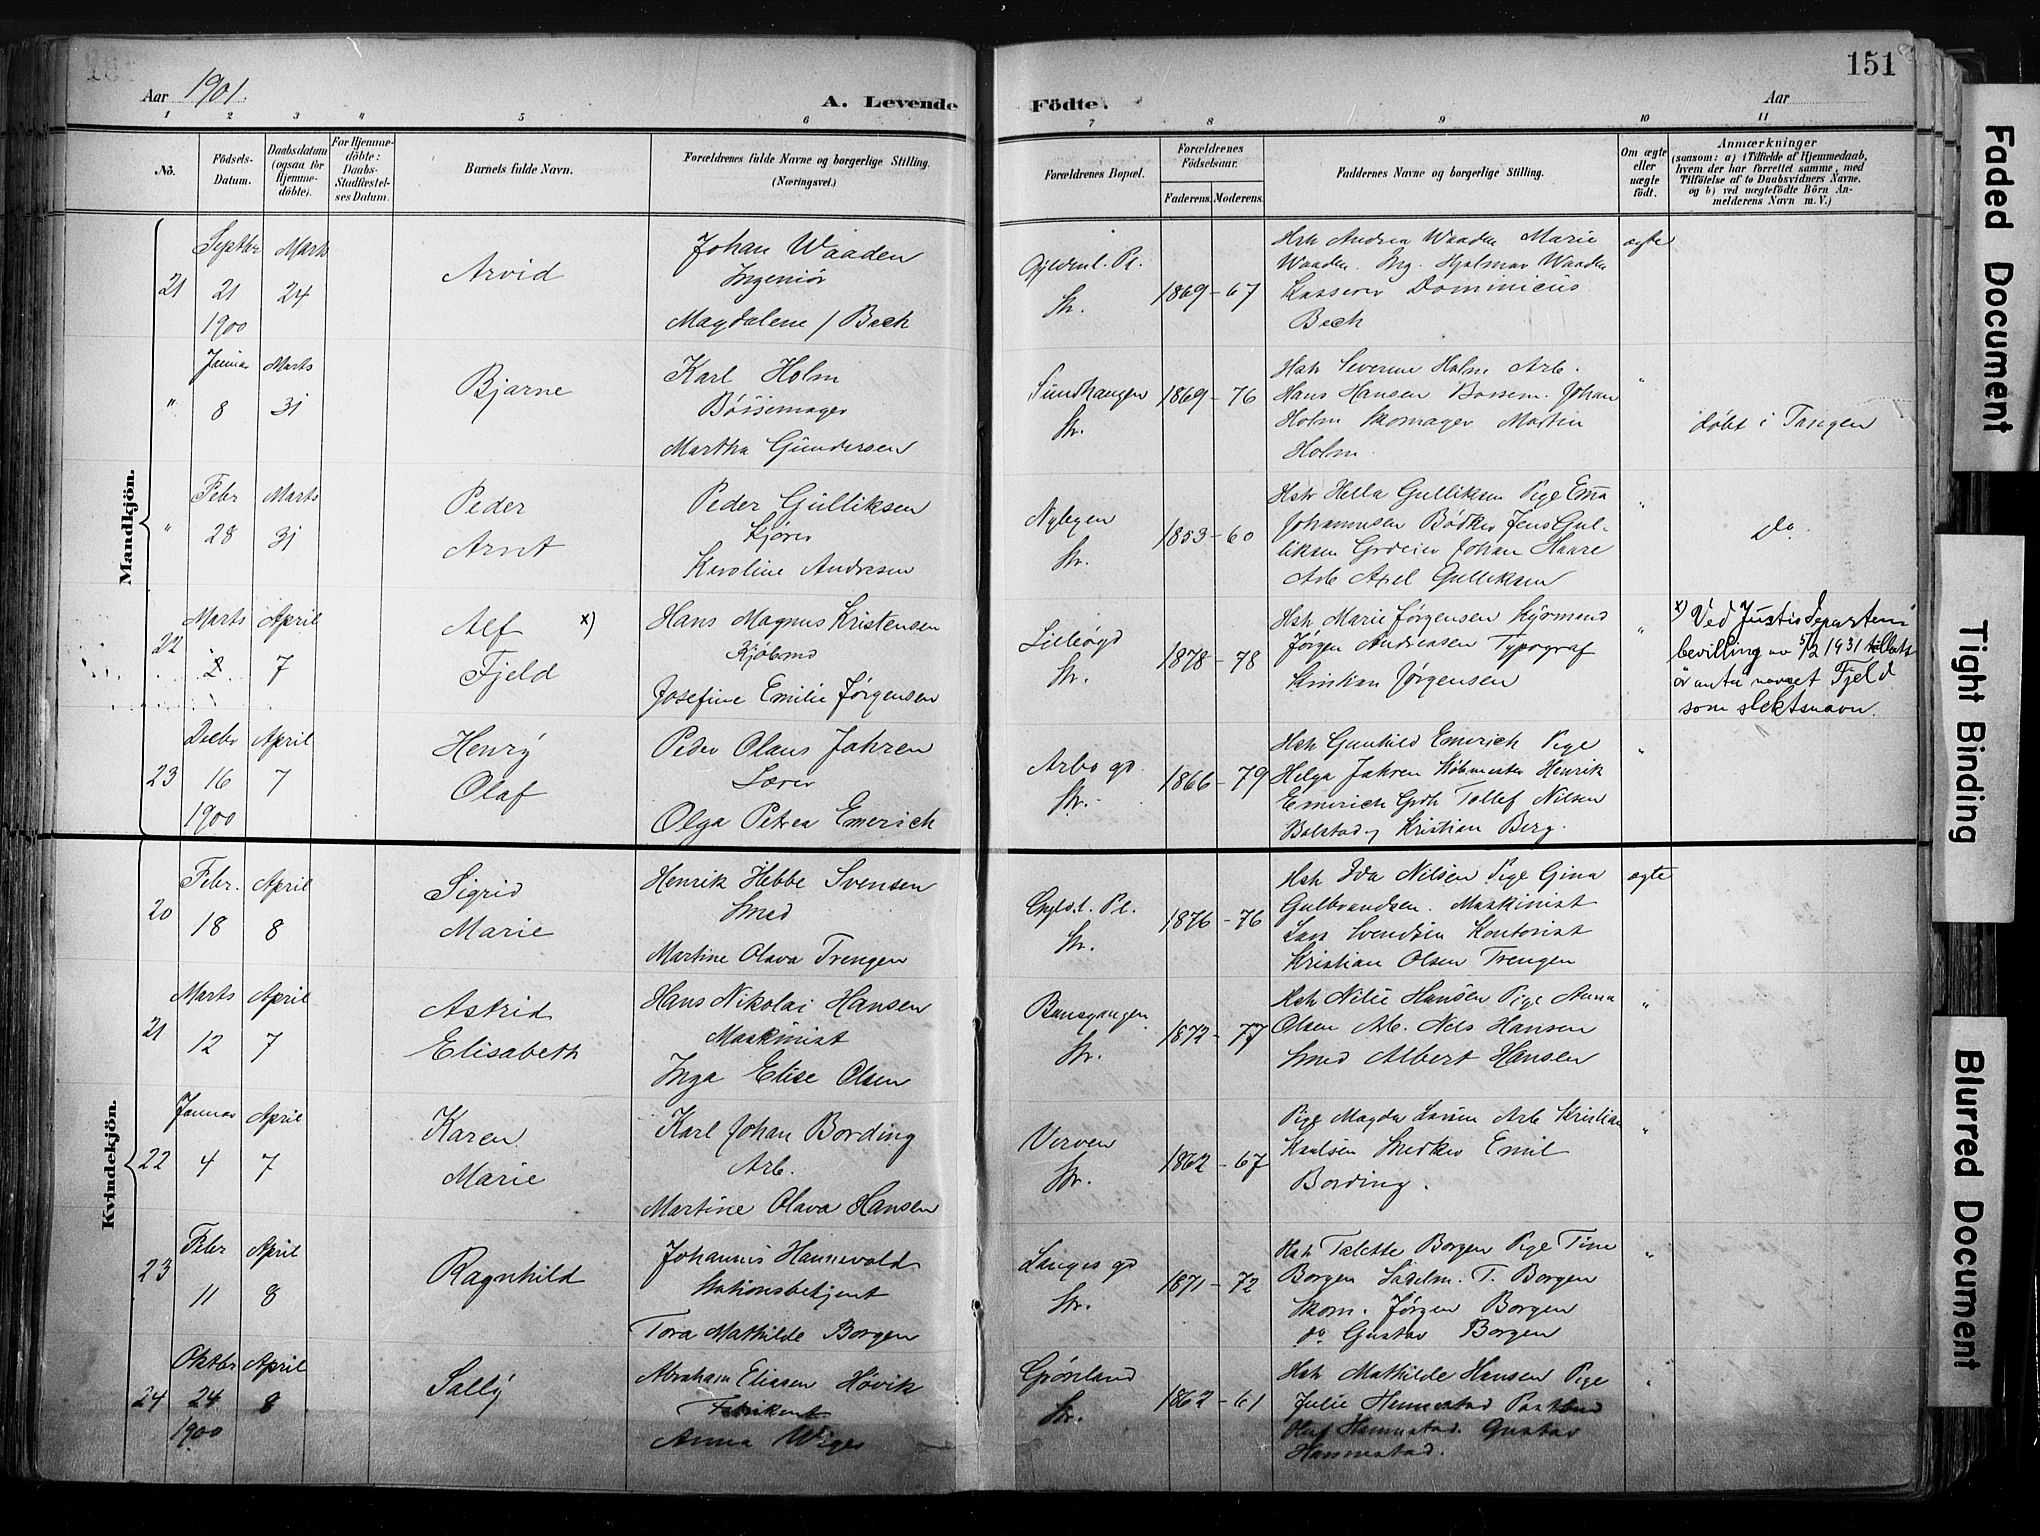 151
Aar 1901.
A. Levende Födte.
Aar
1 2 3 4 5 6 7 8 9 10 11
No.
Födsels-
Datum.
Daabsdatum
(ogsaa for
Hjemme-
döbte).
For Hjemme-
döbte:
Daabs-
Stadfæstel-
ses Datum.
Barnets fulde Navn.
Forældrenes fulde Navne og borgerlige Stilling.
(Næringsvei.)
Forældrenes Bopæl.
Forældrenes
Födselsaar.
Faderens. Moderens.
Faddernes Navne og borgerlige Stilling.
Om ægte
eller
uægte
födt.
Anmærkninger
(saasom: a) i Tilfælde af Hjemmedaab,
hvem der har forrettet samme, med
Tilföielse af to Daabsvidners Navne.
og b) ved uægtefödte Börn An-
melderens Navn m. V.)
Mandkjön.
21
Septbr
21
1900
Marts
24
Arvid
Johan Waaden
Ingeniör
Magdalene / Bech
Gyldenl. Pl.
Str.
1869 - 67
Hstr Andrea Waaden Marie
Waaden. Ing. Hjalmar Waaden
Kasserer Dominicus
Bech
ægte
"
Januar
8
Marts
31
Bjarne
Karl Holm
Børssemager
Martha Gundersen
Sundhaugen
Str.
1869 - 76
Hstr Severine Holm Arb.
Hans Hansen Børssem. Johan
Holm Skomager Martin
Holm.
"
døbt i Tangen
"
Febr
28
Marts
31
Peder
Arnt
Peder Gulliksen
Kjører
Karoline Andresen
Nybyen
Str.
1853 - 60
Hstr Hella Gulliksen Pige Emma
Johannesen Bødker Jens Gul-
liksen Grdeier Johan Haare
Arb Axel Gulliksen
"
Do.
22
Marts
2
April
7
Alf x)
Fjeld
Hans Magnus Kristensen
Kjøbmd
Josefine Emilie Jørgensen
Lilleøgd
Str.
1878 - 78
Hstr Marie Jørgensen Kjørmend
Jørgen Andreasen Typograf
Kristian Jørgensen
"
x) Ved Justisdeparten
bevilling av 5/2 1931 tillatt
å anta navnet Fjeld
som slektsnavn.
23
Decbr
16
1900
April
7
Henry
Olaf
Peder Olaus Jahren
Lærer
Olga Petrea Emerich
Arbo gd.
Str.
1866 - 79
Hstr Gunhild Emerich Pige
Helga Jahren Købmester Henrik
Emerich Grdb Tollef Nilsen
Bolstad og Kristian Berg.
"
Kvindekjön.
20
Febr.
18
April
8
Sigrid
Marie
Henrik Hebbe Svensen
Smed
Martine Olava Trengen
Gyld.l. Pl.
Str.
1876 - 76
Hstr Ida Nilsen Pige Gina
Gulbrandsen. Maskinist
Lars Svendsen Kontorist
Kristian Olsen Trengen
ægte
21
Marts
12
April
7
Astrid
Elisabeth
Hans Nikolai Hansen
Maskinist
Inga Elise Olsen
Bansgangen
Str.
1872 - 77
Hstr Nilie Hansen Pige Anna
Olsen Arb. Nels Hansen
Smed Albert Hansen
"
22
Januar
4
April
7
Karen
Marie
Karl Johan Bording
Arb.
Martine Olava Hansen
Verven
Str.
1862 - 67
Pige Magda Larsen Arb Kristian
Knutsen Snedker Emil
Bording.
"
23
Febr
11
April
8
Ragnhild
Johannes Hannevold
Stationsbetjent
Tora Mathilde Borgen
Langes gd
Str.
1871 - 72
Hstr Talette Borgen Pige Tine
Borgen Sadelm. T. Borgen
Skom. Jørgen Borgen
do Gustav Borgen
"
24
Oktbr
24
1900
April
8
Sally
Abraham Eliasen Høvik
Fabrikant
Anna Wiger
Grønland
Str.
1862 - 61
Hstr Mathilde Hansen Pige
Julie Hennestad Postbud
Olaf Hennestad. Gustav
Hennestad.
Faded Document
Tight Binding
Blurred Document